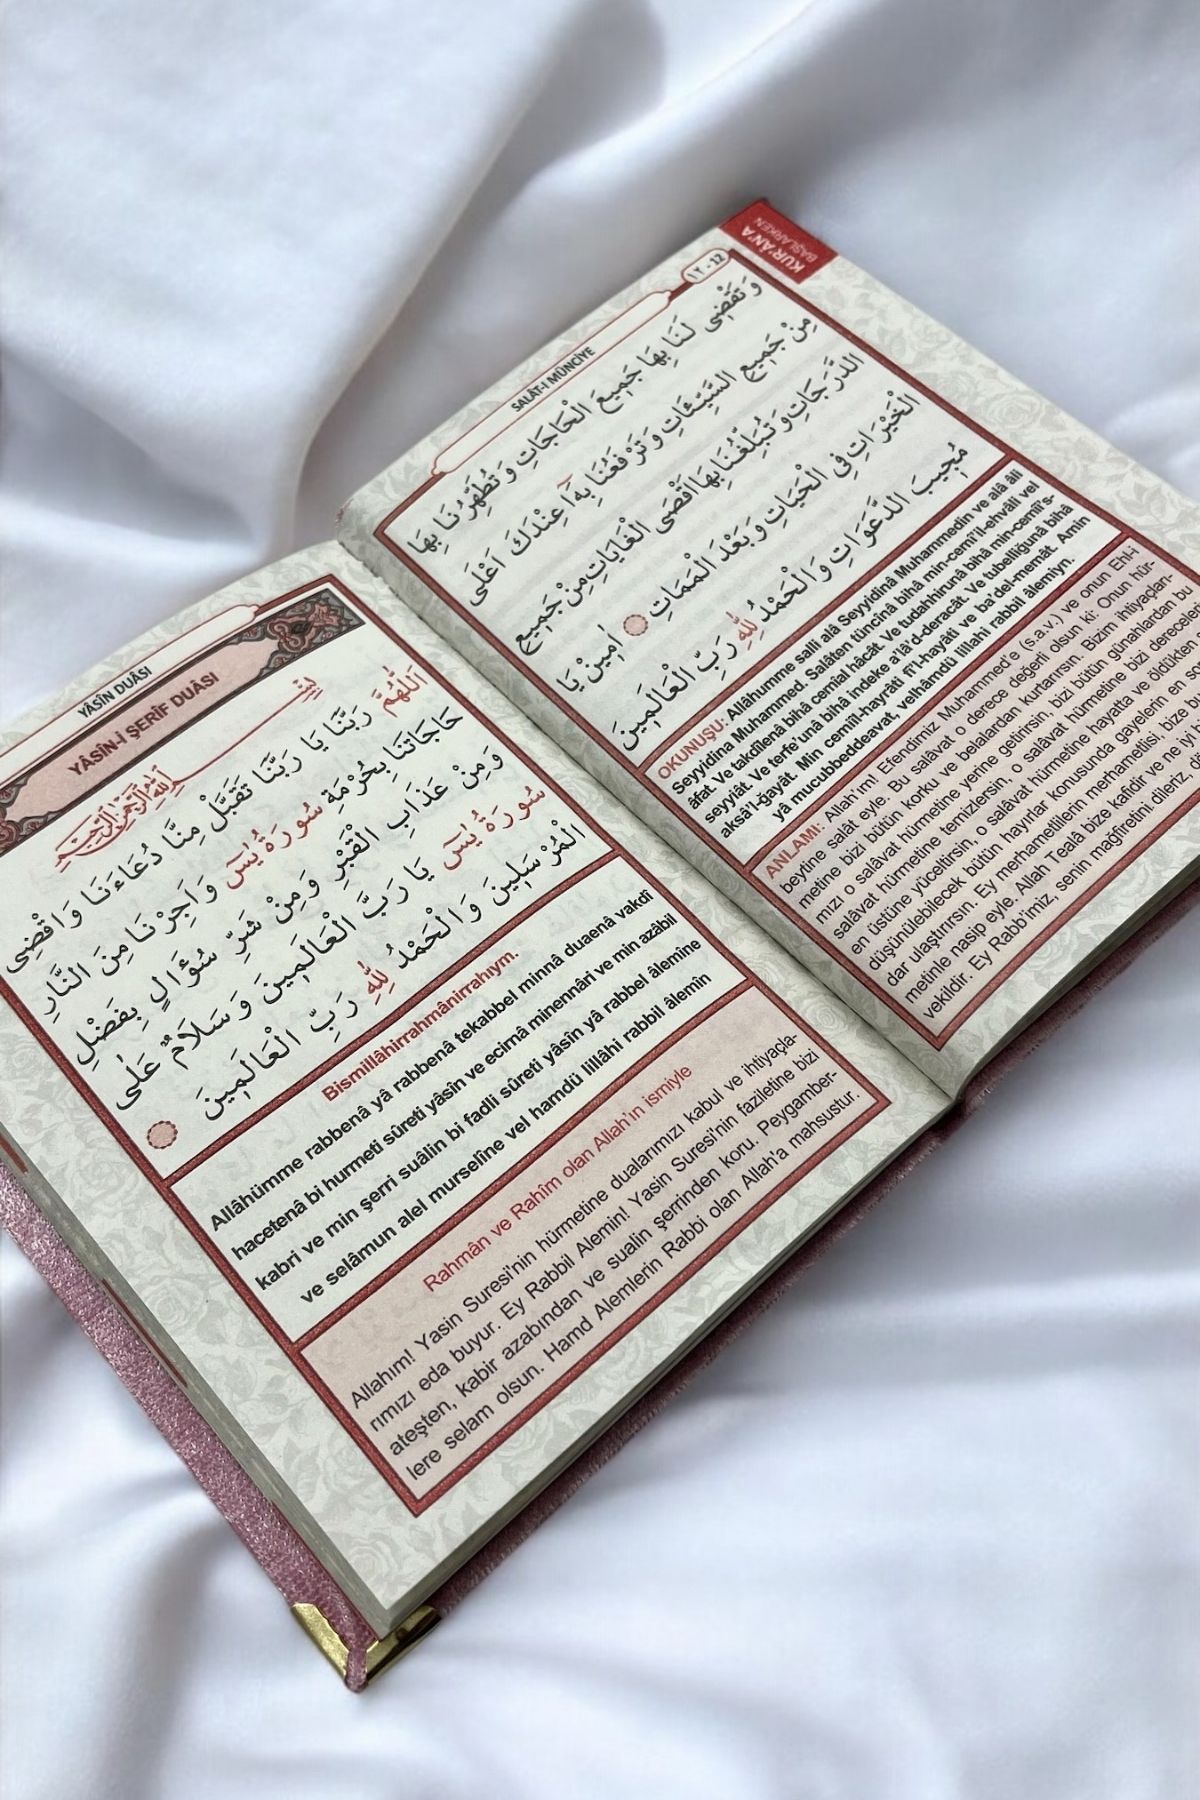 YÂSİN DUÂSI
YÂSİN-İ ŞERİF DUÂSI
اَللّٰهُمَّ رَبَّنَا يَا رَبَّنَا تَقَبَّلْ مِنَّا دُعَاءَنَا وَاقْضِى
حَاجَاتَنَا بِحُرْمَةِ سُورَةُ يٰسٓ وَاَجِرْنَا مِنَ النَّارِ
وَمِنْ عَذَابِ الْقَبْرِ وَمِنْ شَرِّ سُؤَالٍ بِفَضْلِ
سُورَةُ يٰسٓ يَا رَبَّ الْعَالَمِينَ وَسَلَامٌ عَلٰى
الْمُرْسَلِينَ وَالْحَمْدُ لِلّٰهِ رَبِّ الْعَالَمِينَ
Bismillâhirrahmânirrahiym.
Allâhümme rabbenâ yâ rabbenâ tekabbel minnâ duaenâ vakdî
hacetenâ bi hurmeti sûreti yâsîn ve ecirnâ minennâri ve min azâbil
kabri ve min şerri suâlin bi fadli sûreti yâsîn yâ rabbel âlemine
ve selâmun alel murselîne vel hamdü lillâhi rabbil âlemîn
Rahmân ve Rahîm olan Allah'ın ismiyle
Allahım! Yasin Suresi'nin hürmetine dualarımızı kabul ve ihtiyaçla-
rımızı eda buyur. Ey Rabbil Alemin! Yasin Suresi'nin faziletine bizi
ateşten, kabir azabından ve sualin şerrinden koru. Peygamber-
lere selam olsun. Hamd Alemlerin Rabbi olan Allah'a mahsustur.
KUR'ÂN'A
BAŞLARKEN
١٢ - 12
SALÂT-I MÜNCİYE
وَتَقْضِى لَنَا بِهَا جَمِيعَ الْحَاجَاتِ وَتُطَهِّرُنَا بِهَا
مِنْ جَمِيعِ السَّيِّئَاتِ وَتَرْفَعُنَا بِهَٓا عِنْدَكَ اَعْلَى
الدَّرَجَاتِ وَتُبَلِّغُنَا بِهَا اَقْصَى الْغَايَاتِ مِنْ جَمِيعِ
الْخَيْرَاتِ فِى الْحَيَاتِ وَبَعْدَ الْمَمَاتِ اٰمِينْ يَا
مُجِيبَ الدَّعَوَاتِ وَالْحَمْدُ لِلّٰهِ رَبِّ الْعَالَمِينَ
OKUNUŞU: Allâhumme salli alâ Seyyidinâ Muhammedin ve alâ âli
Seyyidina Muhammed. Salâten tüncînâ bihâ min-cemî'il-ehvâli vel
âfat. Ve takdîlenâ bihâ cemial hâcât. Ve tudahhirunâ bihâ min-cemîi's-
seyyiât. Ve terfe'unâ bihâ indeke a'lâ'd-deracât. Ve tubelliğunâ bihâ
aksâ'l-ğayât. Min cemîil-hayrâti fi'l-hayâti ve ba'del-memât. Amin
yâ mucubbeddeavat, velhâmdü lillahi rabbil âlemiyn.
ANLAMI: Allah'ım! Efendimiz Muhammed'e (s.a.v.) ve onun Ehl-i
beytine salât eyle. Bu salâvat o derece değerli olsun ki: Onun hür-
metine bizi bütün korku ve belalardan kurtarırsın. Bizim ihtiyaçları-
mızı o salâvat hürmetine yerine getirirsin, bizi bütün günahlardan bu
salâvat hürmetine temizlersin, o salâvat hürmetine bizi dereceler
en üstüne yüceltirsin, o salâvat hürmetine hayatta ve öldükten
düşünülebilecek bütün hayırlar konusunda gayelerin en so
dar ulaştırırsın. Ey merhametlilerin merhametlisi, bize bu
metinle nasip eyle. Allah Tealâ bize kafidir ve ne iyi
vekildir. Ey Rabb'imiz, senin mağfiretini dileriz,